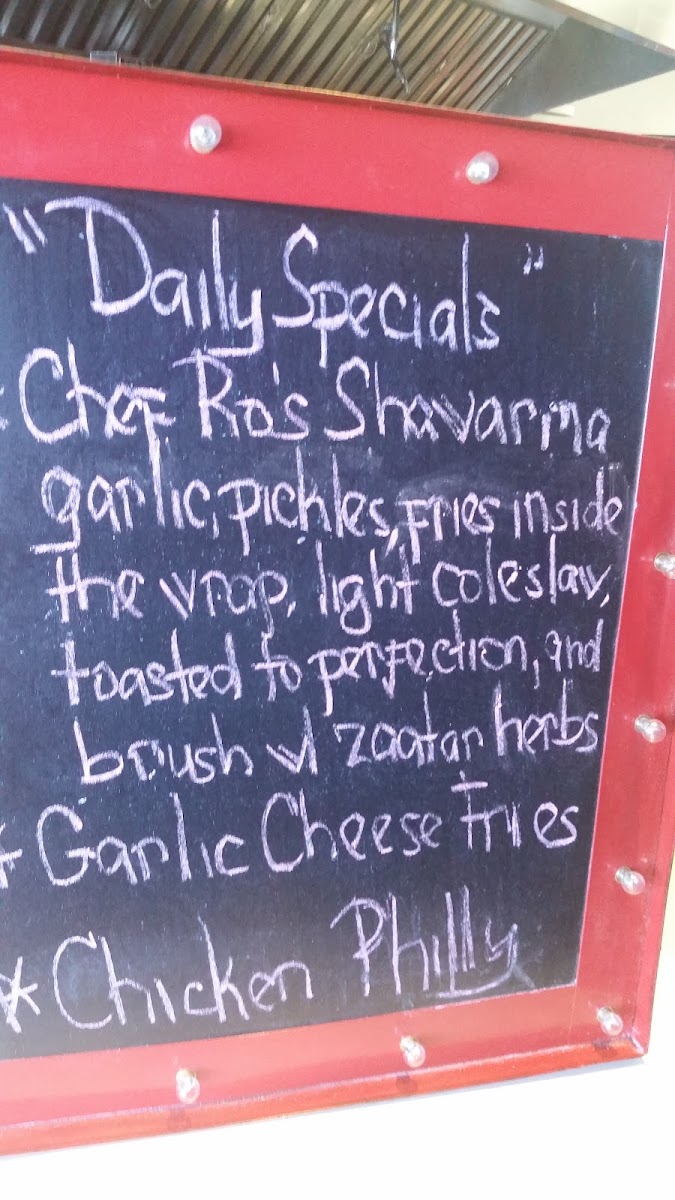 "Daily Specials"
* Chef Ro's Shawarma
garlic, pickles, fries inside
the wrap, light coleslaw,
toasted to perfection, and
brush w/ zaatar herbs
* Garlic Cheese Fries
* Chicken Philly